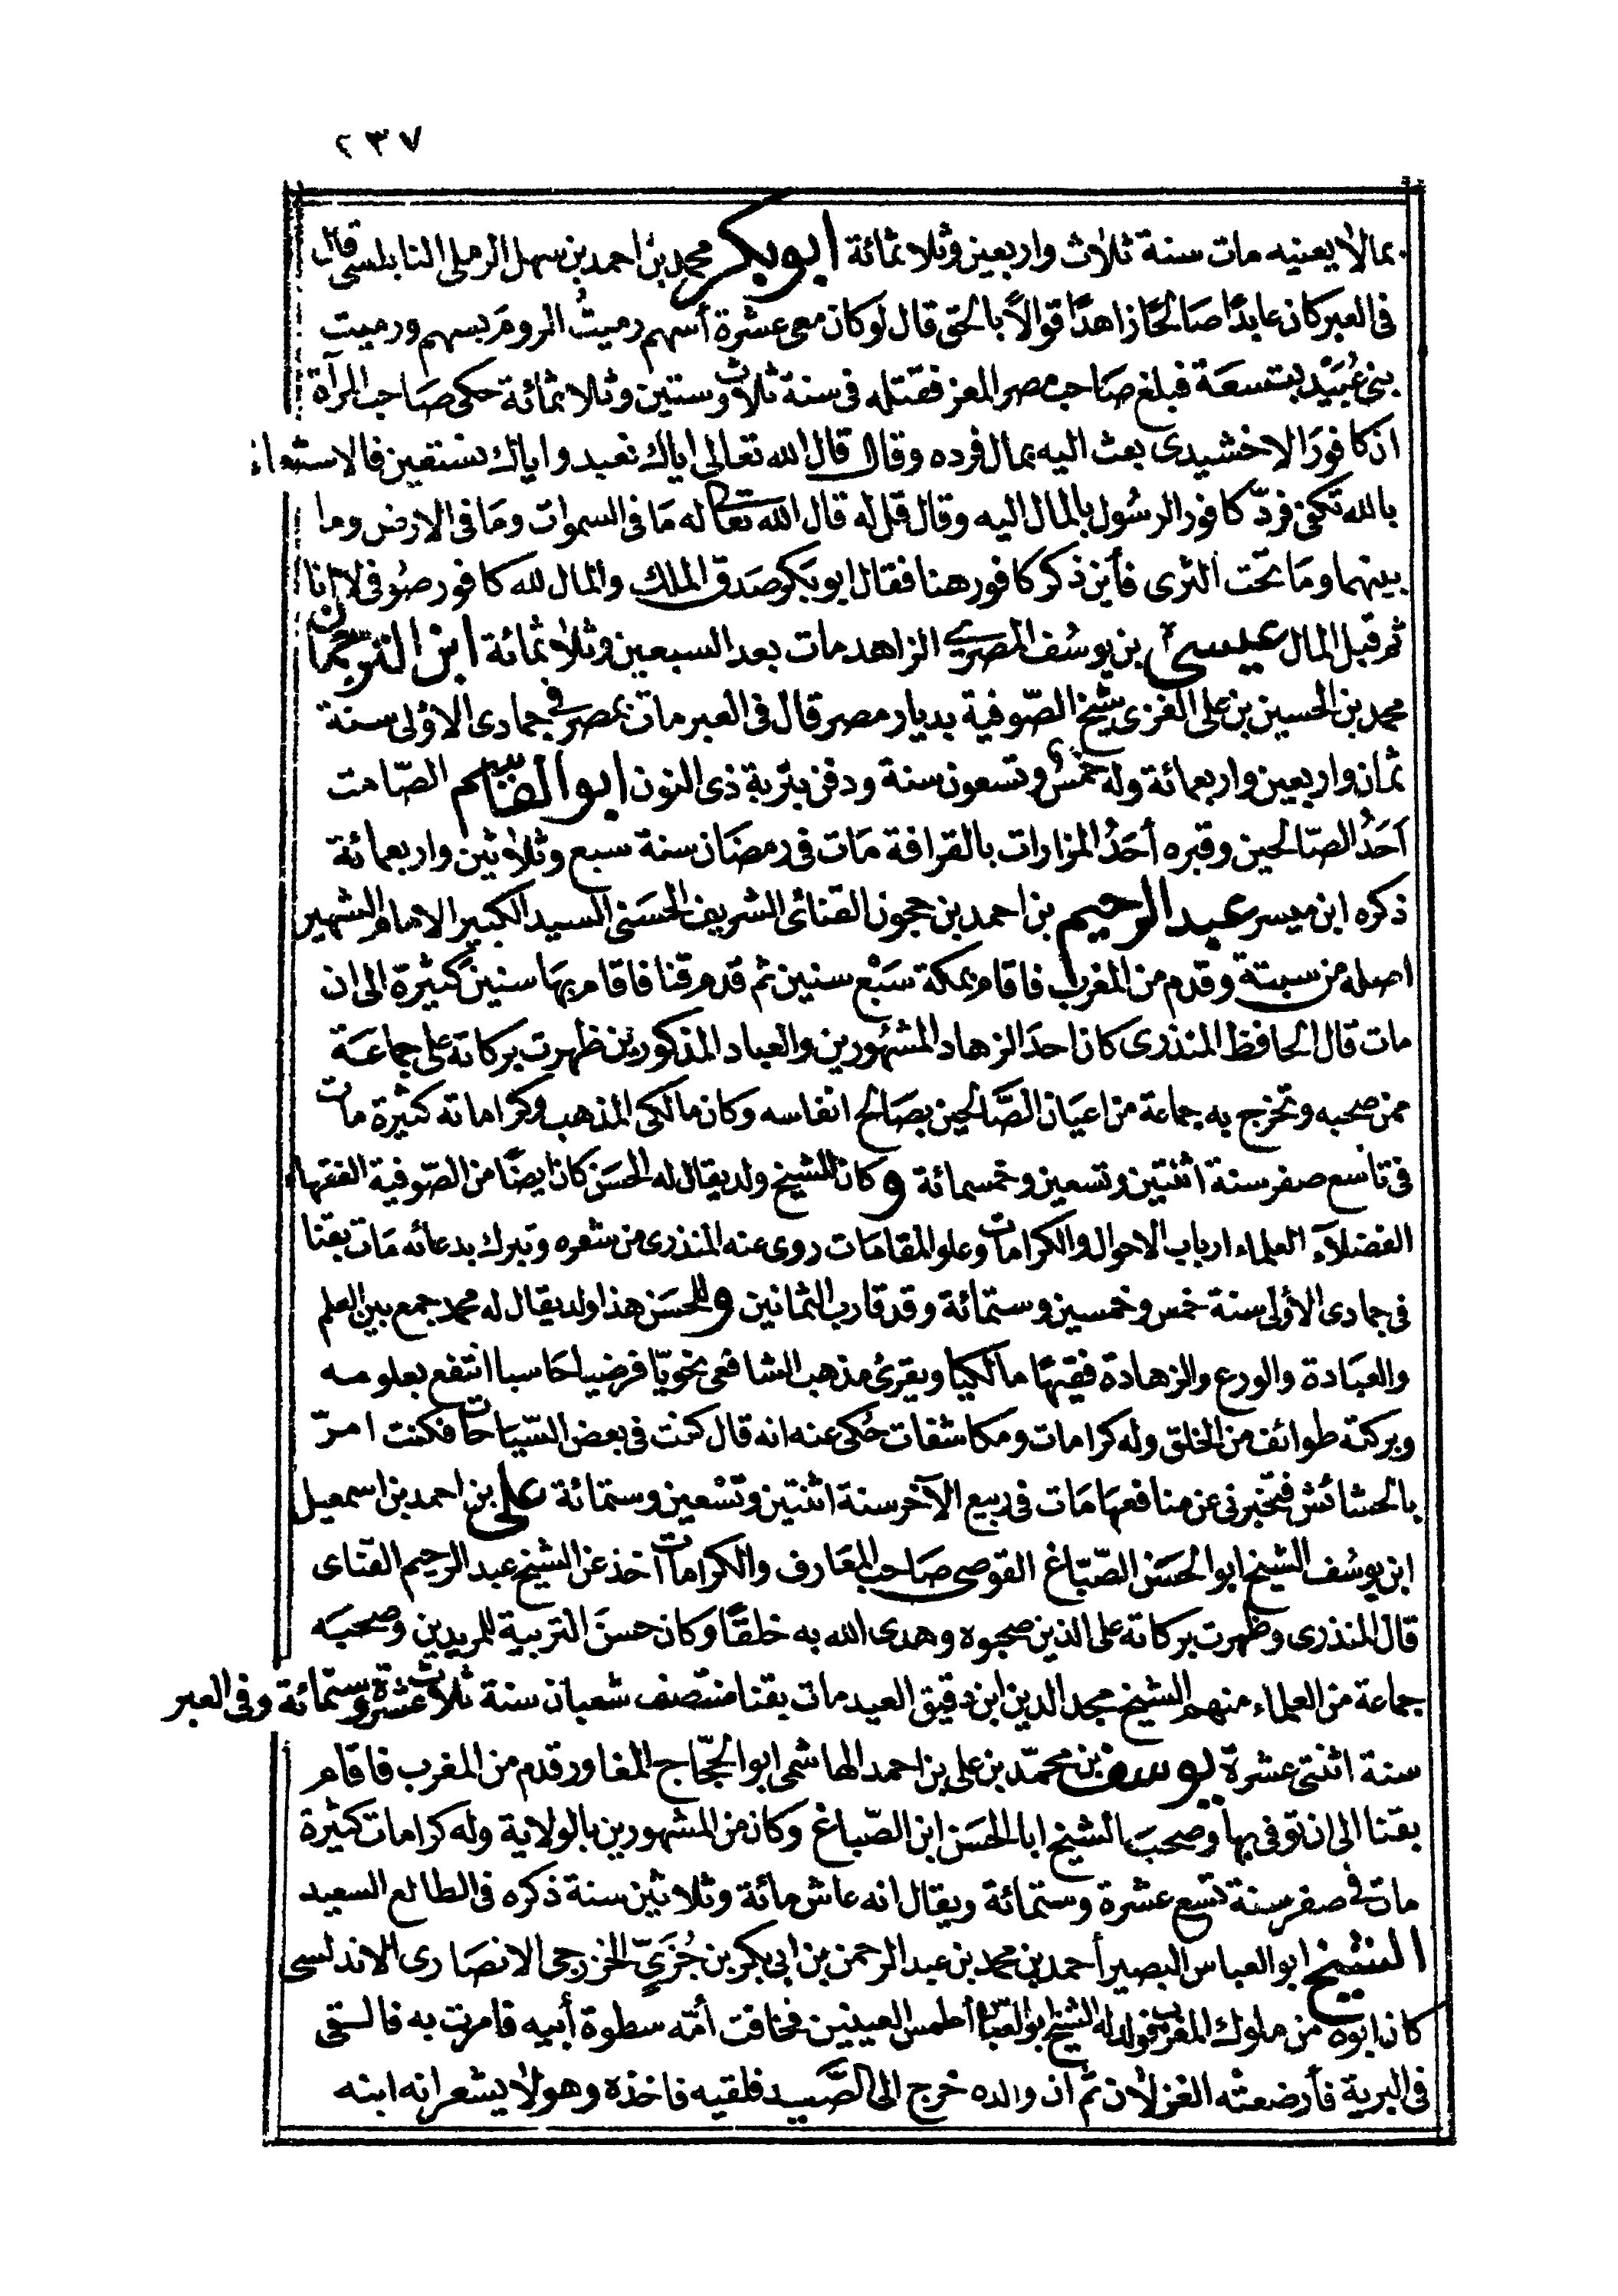 ٢٣٧
بمالا يعنيه مات سنة ثلاث واربعين وثلاثمائة ابوبكر محمد بن احمد بن سهل الرملى النابلسى قال
فى العبر كان عابدًا صَالحًا زاهدًا قوالاً بالحق قال لو كان معى عشرة أسهم رميتُ الروم بسهم ورميت
بنى عُبَيْد بتسعَة فبلغ صَاحب مصر المعز فقتله فى سنة ثلاث وستين وثلاثمائة حكى صَاحب المرآة
ان كافورَ الاخشيدى بعث اليه بمال فرده وقال قال الله تعالى اياك نعبد واياك نستعين فالاستعاء
بالله تكفى فردّ كافور الرسُول بالمال اليه وقال قل له قال الله تعالى له مَا فى السموات ومَا فى الارض وما
بينهما ومَا تحت الثرى فأين ذكر كافور هنا فقال ابوبكر صَدق الملك والمال لله كافور صُوفى لا انا
ثم قبل المال عيسى بن يوسُف المصرى الزاهد مات بعد السبعين وثلاثمائة ابن الترجمان
محمد بن الحسين بن على الغزى شيخ الصّوفية بديار مصر قال فى العبر مات بمصر فى جمادى الاؤلى سنة
ثمان واربعين واربعمائة وله خمس وتسعون سنة ودفن بتربة ذى النون ابوالقاسم الصّامت
أحَدُ الصّالحين وقبره أحَدُ المزارات بالقرافة مَات فى رمضَان سنة سبع وثلاثين واربعمائة
ذكره ابن ميسر عبد الرحيم بن احمد بن حجون القنائى الشريف الحسَنى السيد الكبير الامام الشهير
اصله من سبتة وقدم من المغرب فاقام بمكة سَبْع سنين ثم قدم قنا فاقام بهَا سنين كثيرة الى ان
مات قال الحافظ المنذرى كان احدَ الزهاد المشهُورين والعباد المذكورين ظهرت بركاته على جماعَة
ممن صحبه وتخرج به جماعة من اعيَان الصَّالحين بصَالح انفاسه وكان مالكى المذهب وكراماته كثيرة مات
فى تاسع صفر سنة اثنتين وتسعين وخمسمائة وكان للشيخ ولد يقال له الحسَن كان ايضًا من الصّوفية الفقهاء
الفضلآء العلماء ارباب الاحوال والكرامات وعلو المقامَات روى عنه المنذرى من شعره وتبرك بدعائه مَات بقنا
فى جمادى الأولى سنة خمس وخمسين وستمائة وقد قارب الثمانين وللحسَن هذا ولد يقال له محمد جمع بين العلم
والعبَادة والورع والزهادة فقيهًا مالكيا ويقرئ مذهب الشافعى نحويّا فرضيا حَاسبا انتفع بعلومه
وبركته طوائف من الخلق وله كرامات ومكاشفات حُكى عنه انه قال كنت فى بعض السّيَاحات فكنت امرّ
بالحشائش فتخبرنى عن منافعهَا مَات فى ربيع الآخر سنة اثنتين وتسْعين وستمائة على بن احمد بن اسمعيل
ابن يوسُف الشيخ ابوالحسَن الصّبّاغ القوصى صَاحب المعَارف والكرامات اخذ عن الشيخ عبد الرحيم القناى
قال المنذرى وظهرت بركاته على الذين صحبوه وهدى الله به خلقًا وكان حسنَ التربية للمريدين وصحبَه
جماعة من العلماء منهم الشيخ مجد الدين ابن دقيق العيد مات بقنا منتصف شعبان سنة ثلاث عشرة وستمائة وفى العبر
سنة اثنتى عشرة يوسف بن محمّد بن على بن احمد الهاشمى ابو الحجّاج المغاور قدم من المغرب فاقام
بقنا الى ان توفى بها وصحبَ الشيخ ابا الحسَن ابن الصّباغ وكان من المشهورين بالولاية وله كرامات كثيرة
مات فى صفر سنة تسع عشرة وستمائة ويقال انه عاش مائة وثلاثين سنة ذكره فى الطالع السعيد
الشيخ ابو العباس البصير أحمد بن محمد بن عبد الرحمن بن ابى بكر بن جُزَىّ الخزرجى الانصَارى الاندلسى
كان ابوه من ملوك المغرب فولد له الشيخ ابو العبّاس أطمس العينين فخافت أمّه سطوة أبيه فامرت به فالقى
فى البرية فأرضعته الغزلان ثم ان والده خرج الى الصَّيد فلقيه فاخذه وهو لا يشعر انه ابنه